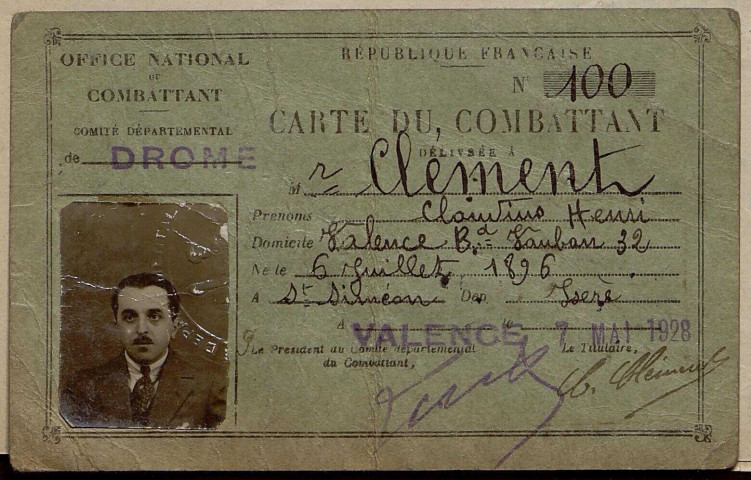 OFFICE NATIONAL
DU
COMBATTANT
COMITÉ DÉPARTEMENTAL
de DROME
RÉPUBLIQUE FRANÇAISE
N° 100
CARTE DU COMBATTANT
DÉLIVRÉE À
Mr Clément
Prénoms Claudius Henri
Domicile Valence Bd Vauban 32
Né le 6 Juillet 1896
A St Siméon Dép. Isère
A VALENCE le 7 MAI 1928
Le Président du Comité départemental
du Combattant,
Le Titulaire,
Cl. Clément